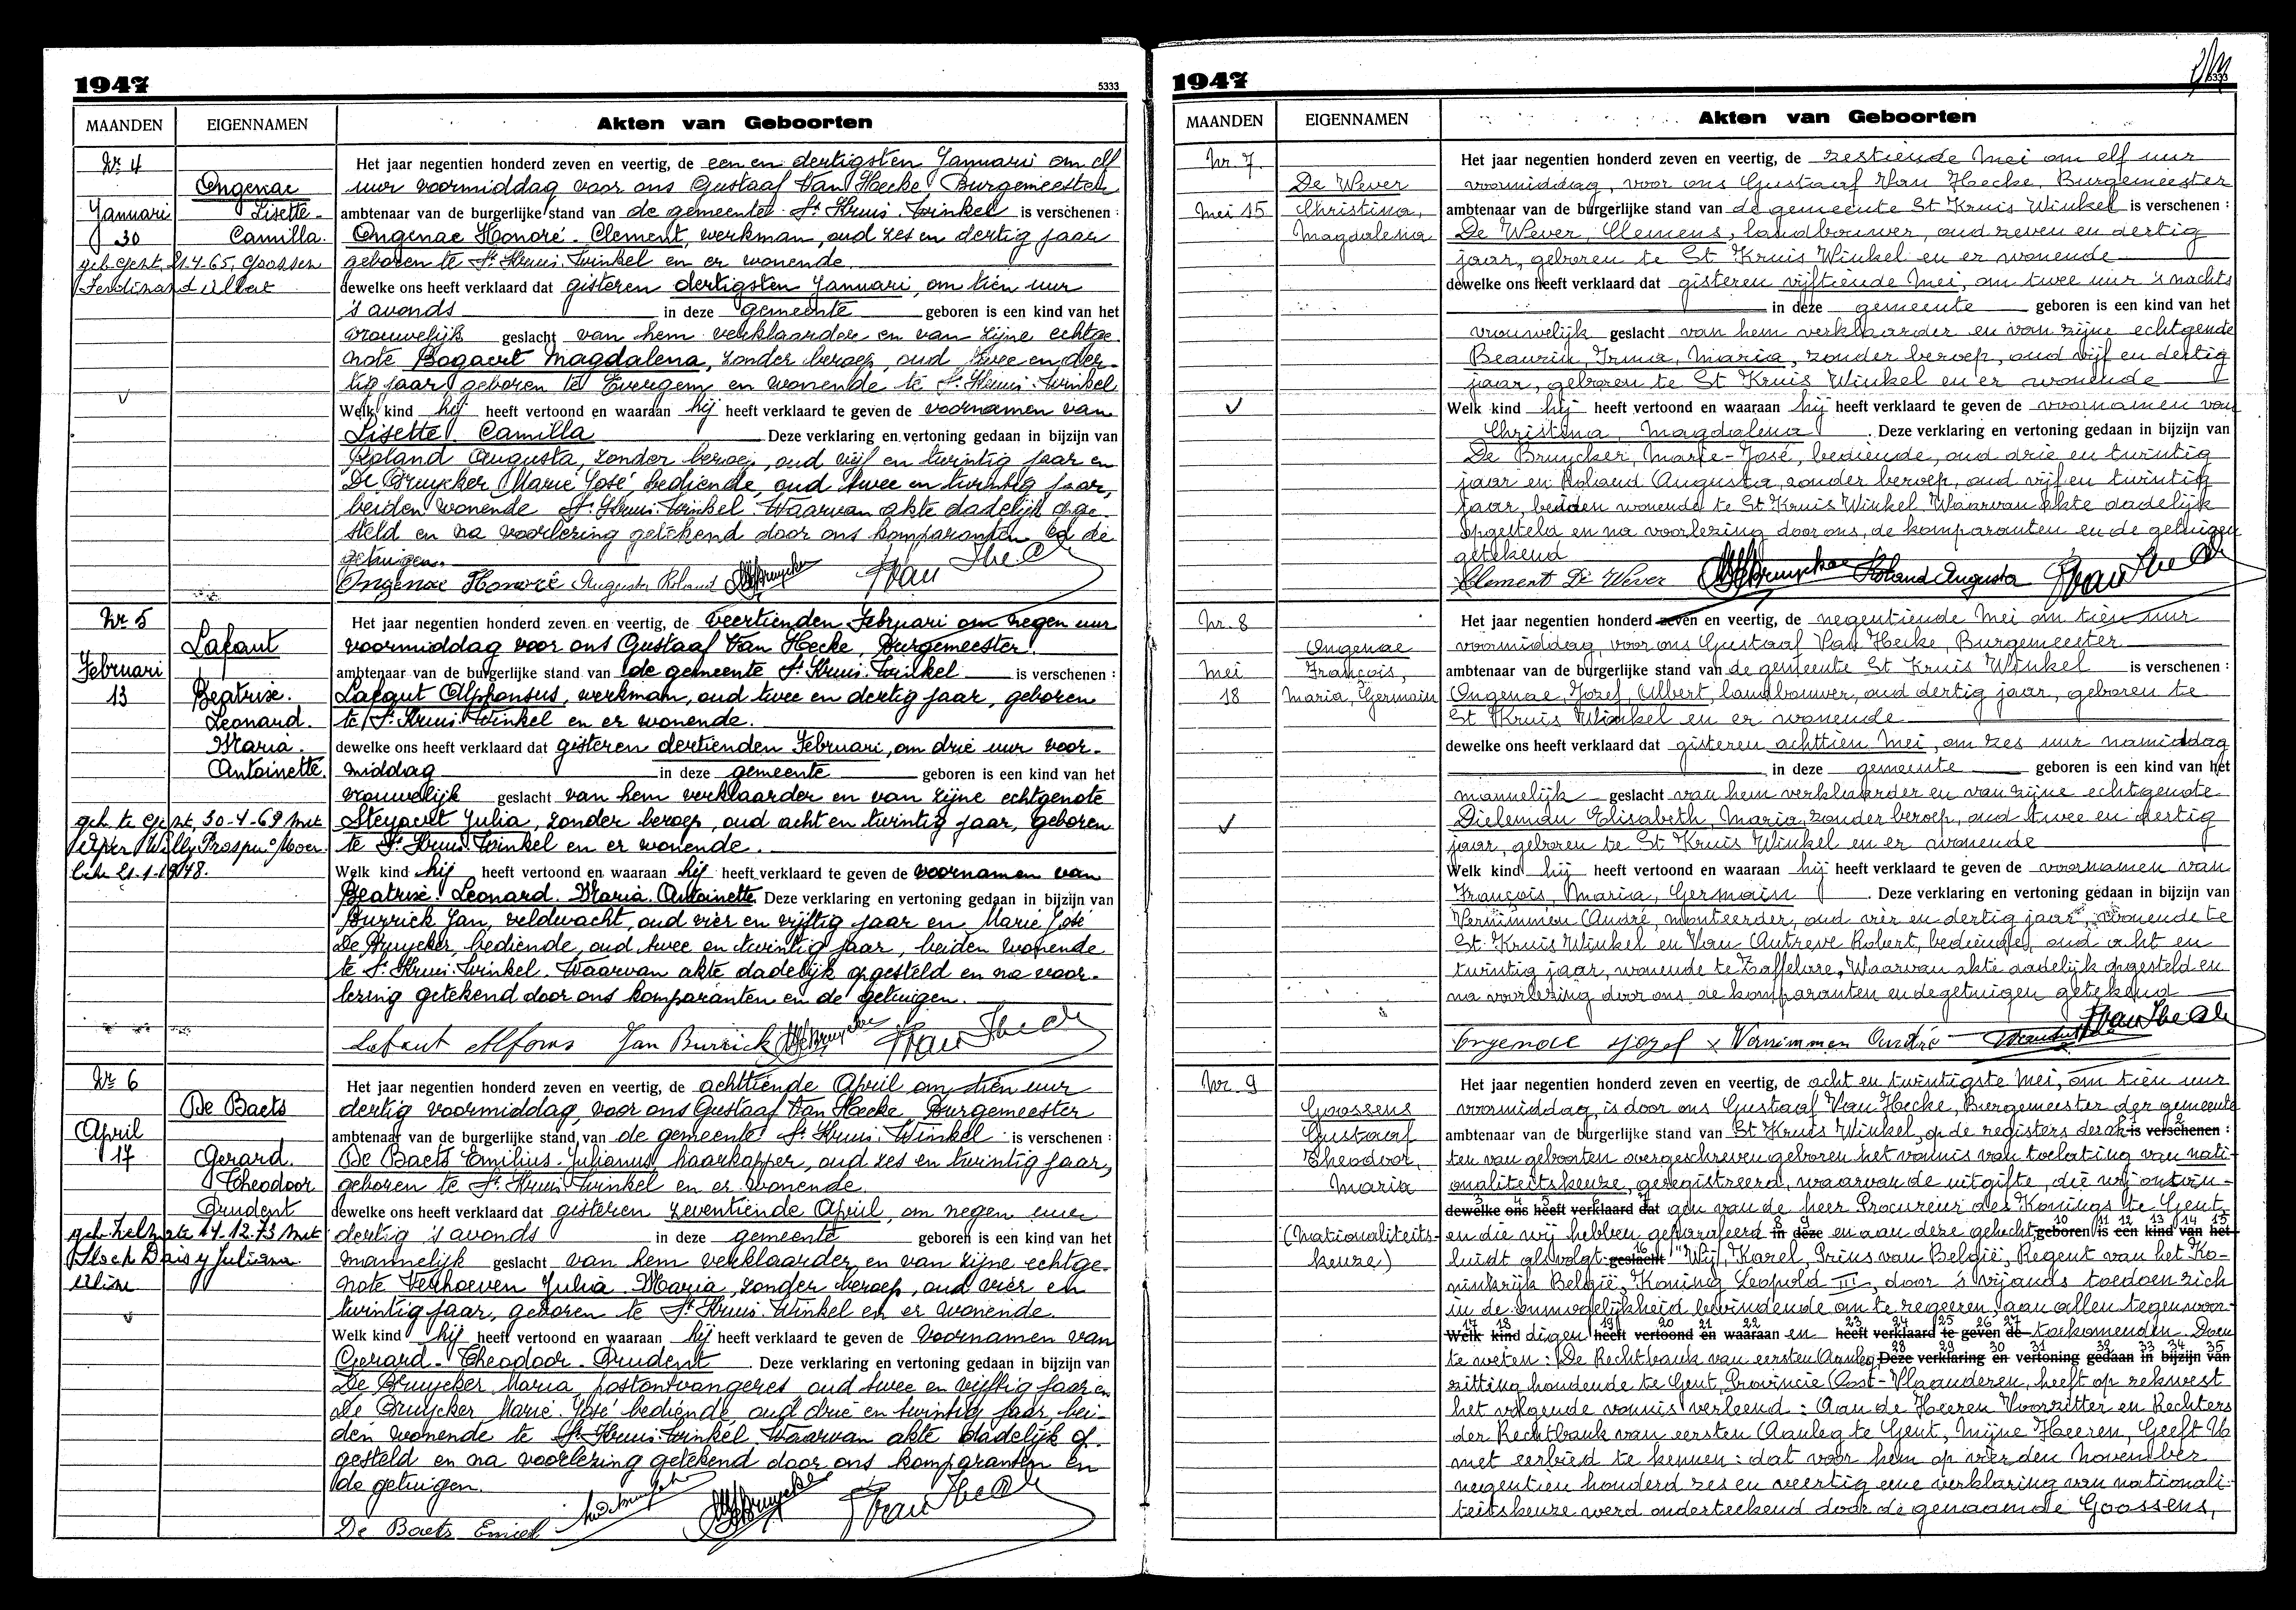 1947
5333
MAANDEN
EIGENNAMEN
Akten van Geboorten
Nr 4
Ongenae
Lisette-
Camilla.
Januari
30
geh. Gent, 21.4.65, Goossen
Ferdinand Albert
Het jaar negentien honderd zeven en veertig, de een en dertigsten Januari om elf
uur voormiddag voor ons Gustaaf Van Hecke Burgemeester
ambtenaar van de burgerlijke stand van de gemeente St Kruis. Winkel is verschenen :
Ongenae Honoré. Clement, werkman, oud zes en dertig jaar
geboren te St Kruis. Winkel en er wonende.
dewelke ons heeft verklaard dat gisteren dertigsten Januari, om tien uur
's avonds in deze gemeente geboren is een kind van het
vrouwelijk geslacht van hem verklaarder en van zijne echtge-
note Bogaert Magdalena, zonder beroep, oud twee en der-
tig jaar geboren te Evergem en wonende te St Kruis. Winkel
Welk kind hij heeft vertoond en waaraan hij heeft verklaard te geven de voornamen van
Lisette. Camilla Deze verklaring en vertoning gedaan in bijzijn van
Roland Augusta, zonder beroep, oud vijf en twintig jaar en
De Bruycker Marie José, bediende, oud twee en twintig jaar,
beiden wonende St Kruis. Winkel. Waarvan akte dadelijk opge-
steld en na voorlezing getekend door ons komparanten en de
getuigen.
Ongenae Honoré Augusta Roland MJDeBruycker
Nr 5
Lafaut
Februari
13
Beatrise.
Leonard.
Maria.
Antoinette.
geh. te Gent, 30-4-69 met
Willy Prosper ° Moer-
beke 21-1-1948.
Het jaar negentien honderd zeven en veertig, de veertienden Februari om negen uur
voormiddag voor ons Gustaaf Van Hecke, Burgemeester.
ambtenaar van de burgerlijke stand van de gemeente St Kruis. Winkel is verschenen :
Lafaut Alphonsus, werkman, oud twee en dertig jaar, geboren
te St Kruis. Winkel en er wonende.
dewelke ons heeft verklaard dat gisteren dertienden Februari, om drie uur voor-
middag in deze gemeente geboren is een kind van het
vrouwelijk geslacht van hem verklaarder en van zijne echtgenote
Steyaert Julia, zonder beroep, oud acht en twintig jaar, geboren
te St Kruis. Winkel en er wonende.
Welk kind hij heeft vertoond en waaraan hij heeft verklaard te geven de voornamen van
Beatrise. Leonard. Maria. Antoinette. Deze verklaring en vertoning gedaan in bijzijn van
Burrick Jan, veldwacht, oud vier en vijftig jaar en Marie José
De Bruycker, bediende, oud twee en twintig jaar, beiden wonende
te St Kruis. Winkel. Waarvan akte dadelijk opgesteld en na voor-
lezing getekend door ons komparanten en de getuigen.
Lafaut Alfons Jan Burrick MJDeBruycker
Nr 6
De Baets
April
17
Gerard.
Theodoor
Prudent
geh. Zelzate 14.12.73 met
Daisy Juliana
Het jaar negentien honderd zeven en veertig, de achttiende April om tien uur
dertig voormiddag, voor ons Gustaaf Van Hecke Burgemeester
ambtenaar van de burgerlijke stand van de gemeente St Kruis. Winkel is verschenen :
De Baets Emilius. Julianus, haarkapper, oud zes en twintig jaar,
geboren te St Kruis. Winkel en er wonende.
dewelke ons heeft verklaard dat gisteren zeventiende April, om negen uur
dertig 's avonds in deze gemeente geboren is een kind van het
mannelijk geslacht van hem verklaarder en van zijne echtge-
note Verhoeven Julia. Maria, zonder beroep, oud vier en
twintig jaar, geboren te St Kruis. Winkel en er wonende.
Welk kind hij heeft vertoond en waaraan hij heeft verklaard te geven de voornamen van
Gerard. Theodoor. Prudent. Deze verklaring en vertoning gedaan in bijzijn van
De Bruycker Maria, postontvangeres, oud twee en vijftig jaar en
De Bruycker Marie José bediende, oud drie en twintig jaar, bei-
den wonende te St Kruis. Winkel. Waarvan akte dadelijk op-
gesteld en na voorlezing getekend door ons komparanten en
de getuigen.
De Baets Emiel
1947
5333
MAANDEN
EIGENNAMEN
Akten van Geboorten
Nr. 7.
De Wever
Mei 15
Christina,
Magdalena
Het jaar negentien honderd zeven en veertig, de zestiende Mei om elf uur
voormiddag, voor ons Gustaaf Van Hecke, Burgemeester
ambtenaar van de burgerlijke stand van de gemeente St Kruis Winkel is verschenen :
De Wever, Clemens, landbouwer, oud zeven en dertig
jaar, geboren te St Kruis Winkel en er wonende
dewelke ons heeft verklaard dat gisteren vijftiende Mei, om twee uur 's nachts
in deze gemeente geboren is een kind van het
vrouwelijk geslacht van hem verklaarder en van zijne echtgenote
Beaurin, Irma, Maria, zonder beroep, oud vijf en dertig
jaar, geboren te St Kruis Winkel en er wonende
Welk kind hij heeft vertoond en waaraan hij heeft verklaard te geven de voornamen van
Christina, Magdalena. Deze verklaring en vertoning gedaan in bijzijn van
De Bruycker, Marie-José, bediende, oud drie en twintig
jaar en Roland Augusta, zonder beroep, oud vijf en twintig
jaar, beiden wonende te St Kruis Winkel. Waarvan akte dadelijk
opgesteld en na voorlezing door ons, de komparanten en de getuigen
getekend
Clement De Wever MJDeBruycker Roland Augusta
Nr. 8
Ongenae
Mei
18
François,
Maria, Germain
Het jaar negentien honderd zeven en veertig, de negentiende Mei om tien uur
voormiddag, voor ons Gustaaf Van Hecke, Burgemeester
ambtenaar van de burgerlijke stand van de gemeente St Kruis Winkel is verschenen :
Ongenae, Jozef, Albert, landbouwer, oud dertig jaar, geboren te
St Kruis Winkel en er wonende
dewelke ons heeft verklaard dat gisteren achttien Mei, om zes uur namiddag
in deze gemeente geboren is een kind van het
mannelijk geslacht van hem verklaarder en van zijne echtgenote
Dieleman Elisabeth, Maria, zonder beroep, oud twee en dertig
jaar, geboren te St Kruis Winkel en er wonende
Welk kind hij heeft vertoond en waaraan hij heeft verklaard te geven de voornamen van
François, Maria, Germain. Deze verklaring en vertoning gedaan in bijzijn van
Vernimmen André, monteerder, oud vier en dertig jaar, wonende te
St. Kruis Winkel en Van Autreve Robert, bediende, oud acht en
twintig jaar, wonende te Zaffelare. Waarvan akte dadelijk opgesteld en
na voorlezing door ons de komparanten en de getuigen getekend
Ongenae Jozef x Vernimmen André
Nr. 9
Goossens
Gustaaf
Theodoor,
Maria
(Nationaliteits-
keuze)
Het jaar negentien honderd zeven en veertig, de acht en twintigste Mei, om tien uur
voormiddag, is door ons Gustaaf Van Hecke, Burgemeester der gemeente
ambtenaar van de burgerlijke stand van St Kruis Winkel, op de registers der ak- is verschenen :
ten van geboorten overgeschreven geboren het vonnis van toelating van nati-
onaliteitskeuze, geregistreerd, waarvan de uitgifte, die wij ontvin-
dewelke ons heeft verklaard dat gen van de heer Procureur des Konings te Gent
en die wij hebben geparafeerd in deze en aan deze gehecht, geboren is een kind van het
luidt als volgt geslacht "Wij, Karel, Prins van België, Regent van het Ko-
ninkrijk België, Koning Leopold III, door 's vijands toedoen zich
in de onmogelijkheid bevindende om te regeeren, aan allen tegenwoor-
Welk kind digen heeft vertoond en waaraan en heeft verklaard te geven de toekomenden. Doen
te weten: De Rechtbank van eersten Aanleg, Deze verklaring en vertoning gedaan in bijzijn van
zitting houdende te Gent, Provincie Oost-Vlaanderen, heeft op rekwest
het volgende vonnis verleend : Aan de Heeren Voorzitter en Rechters
der Rechtbank van eersten Aanleg te Gent, Mijne Heeren, Geeft U
met eerbied te kennen : dat voor hem op vier den November
negentien honderd zes en veertig eene verklaring van nationali-
teitskeuze werd onderteekend door de genaamde Goossens,